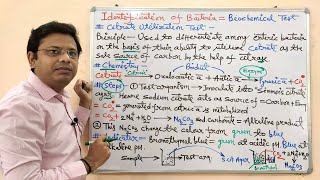 Identification of Bacteria = Biochemical Test
# Citrate Utilization Test
Principle - Used to differentiate among enteric bacteria
on the basis of their ability to utilize Citrate as the
sole Source of Carbon by the help of citrase.
# Chemistry
Citrate Oxaloacetic a + Acetic a Pyruvic a + CO2
# Steps ① Test organism → Inoculate into Simmons citrate
agar. Here sodium citrate acts as Source of = Carbon + Energy
= CO2 = generated from citrate is
= CO2 + 2Na+ + H2O → Na2CO3 and Carbonate = Alkaline product
③ This Na2CO3 change the colour from green to blue
# Indicator = Bromothymol blue = green at acidic pH.
Alkaline pH.
Sample Test org SC Agar
CO2
Na2CO3